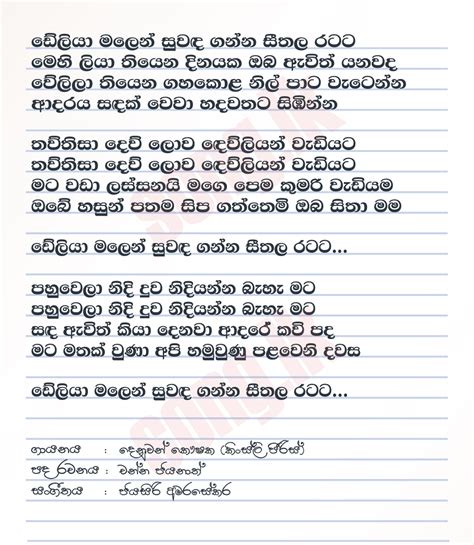 ඩේලියා මලෙන් සුවඳ ගන්න සීතල රටට
මෙහි ලියා තියෙන දිනයක ඔබ ඇවිත් යනවද
වේලිලා තියෙන ගහකොළ නිල් පාට වැටෙන්න
ආදරය සඳක් වෙවා හදවතට සිඹින්න
තව්තිසා දෙව් ලොව දෙව්ලියන් වැඩියට
තව්තිසා දෙව් ලොව දෙව්ලියන් වැඩියට
මට වඩා ලස්සනයි මගෙ පෙම කුමරි වැඩියම
ඔබේ හසුන් පතම සිප ගත්තෙමි ඔබ සිතා මම
ඩේලියා මලෙන් සුවඳ ගන්න සීතල රටට...
පහුවෙලා නිදි දුව නිදියන්න බැහැ මට
පහුවෙලා නිදි දුව නිදියන්න බැහැ මට
සඳ ඇවිත් කියා දෙනවා ආදරේ කවි පද
මට මතක් වුණා අපි හමුවුණු පළවෙනි දවස
ඩේලියා මලෙන් සුවඳ ගන්න සීතල රටට...
ගායනය : දෙනුවන් කෞෂක (කිංස්ලි පීරිස්)
පද රචනය : චන්න ජයනාත්
සංගීතය : ජයසිරි අමරසේකර
song.lk
song.lk